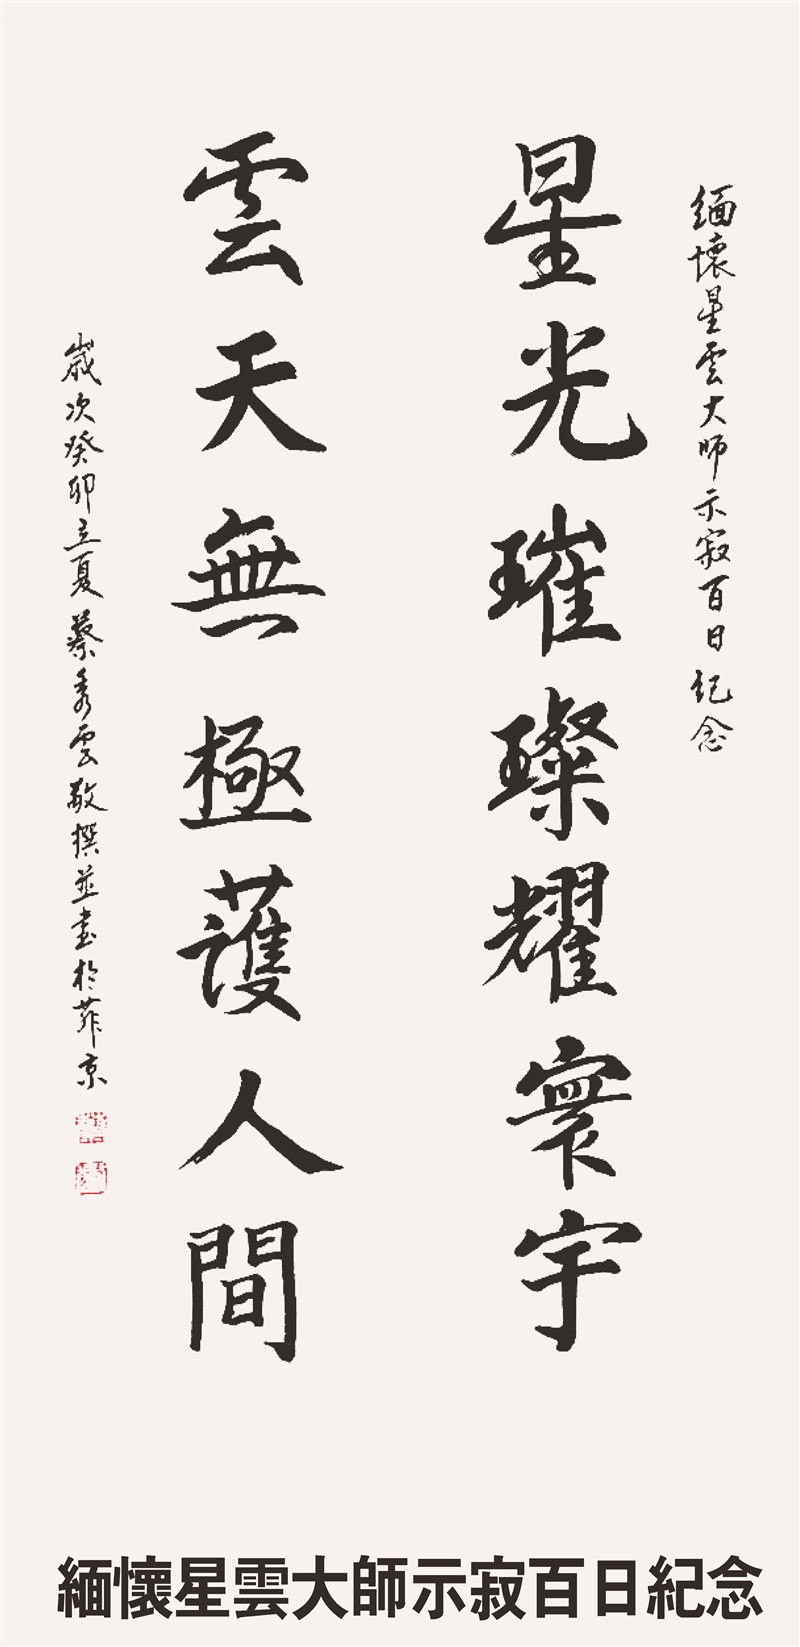 緬懷星雲大師示寂百日紀念
星光璀璨耀寰宇
雲天無極護人間
歲次癸卯立夏蔡秀雲敬撰並書於菲京
緬懷星雲大師示寂百日紀念